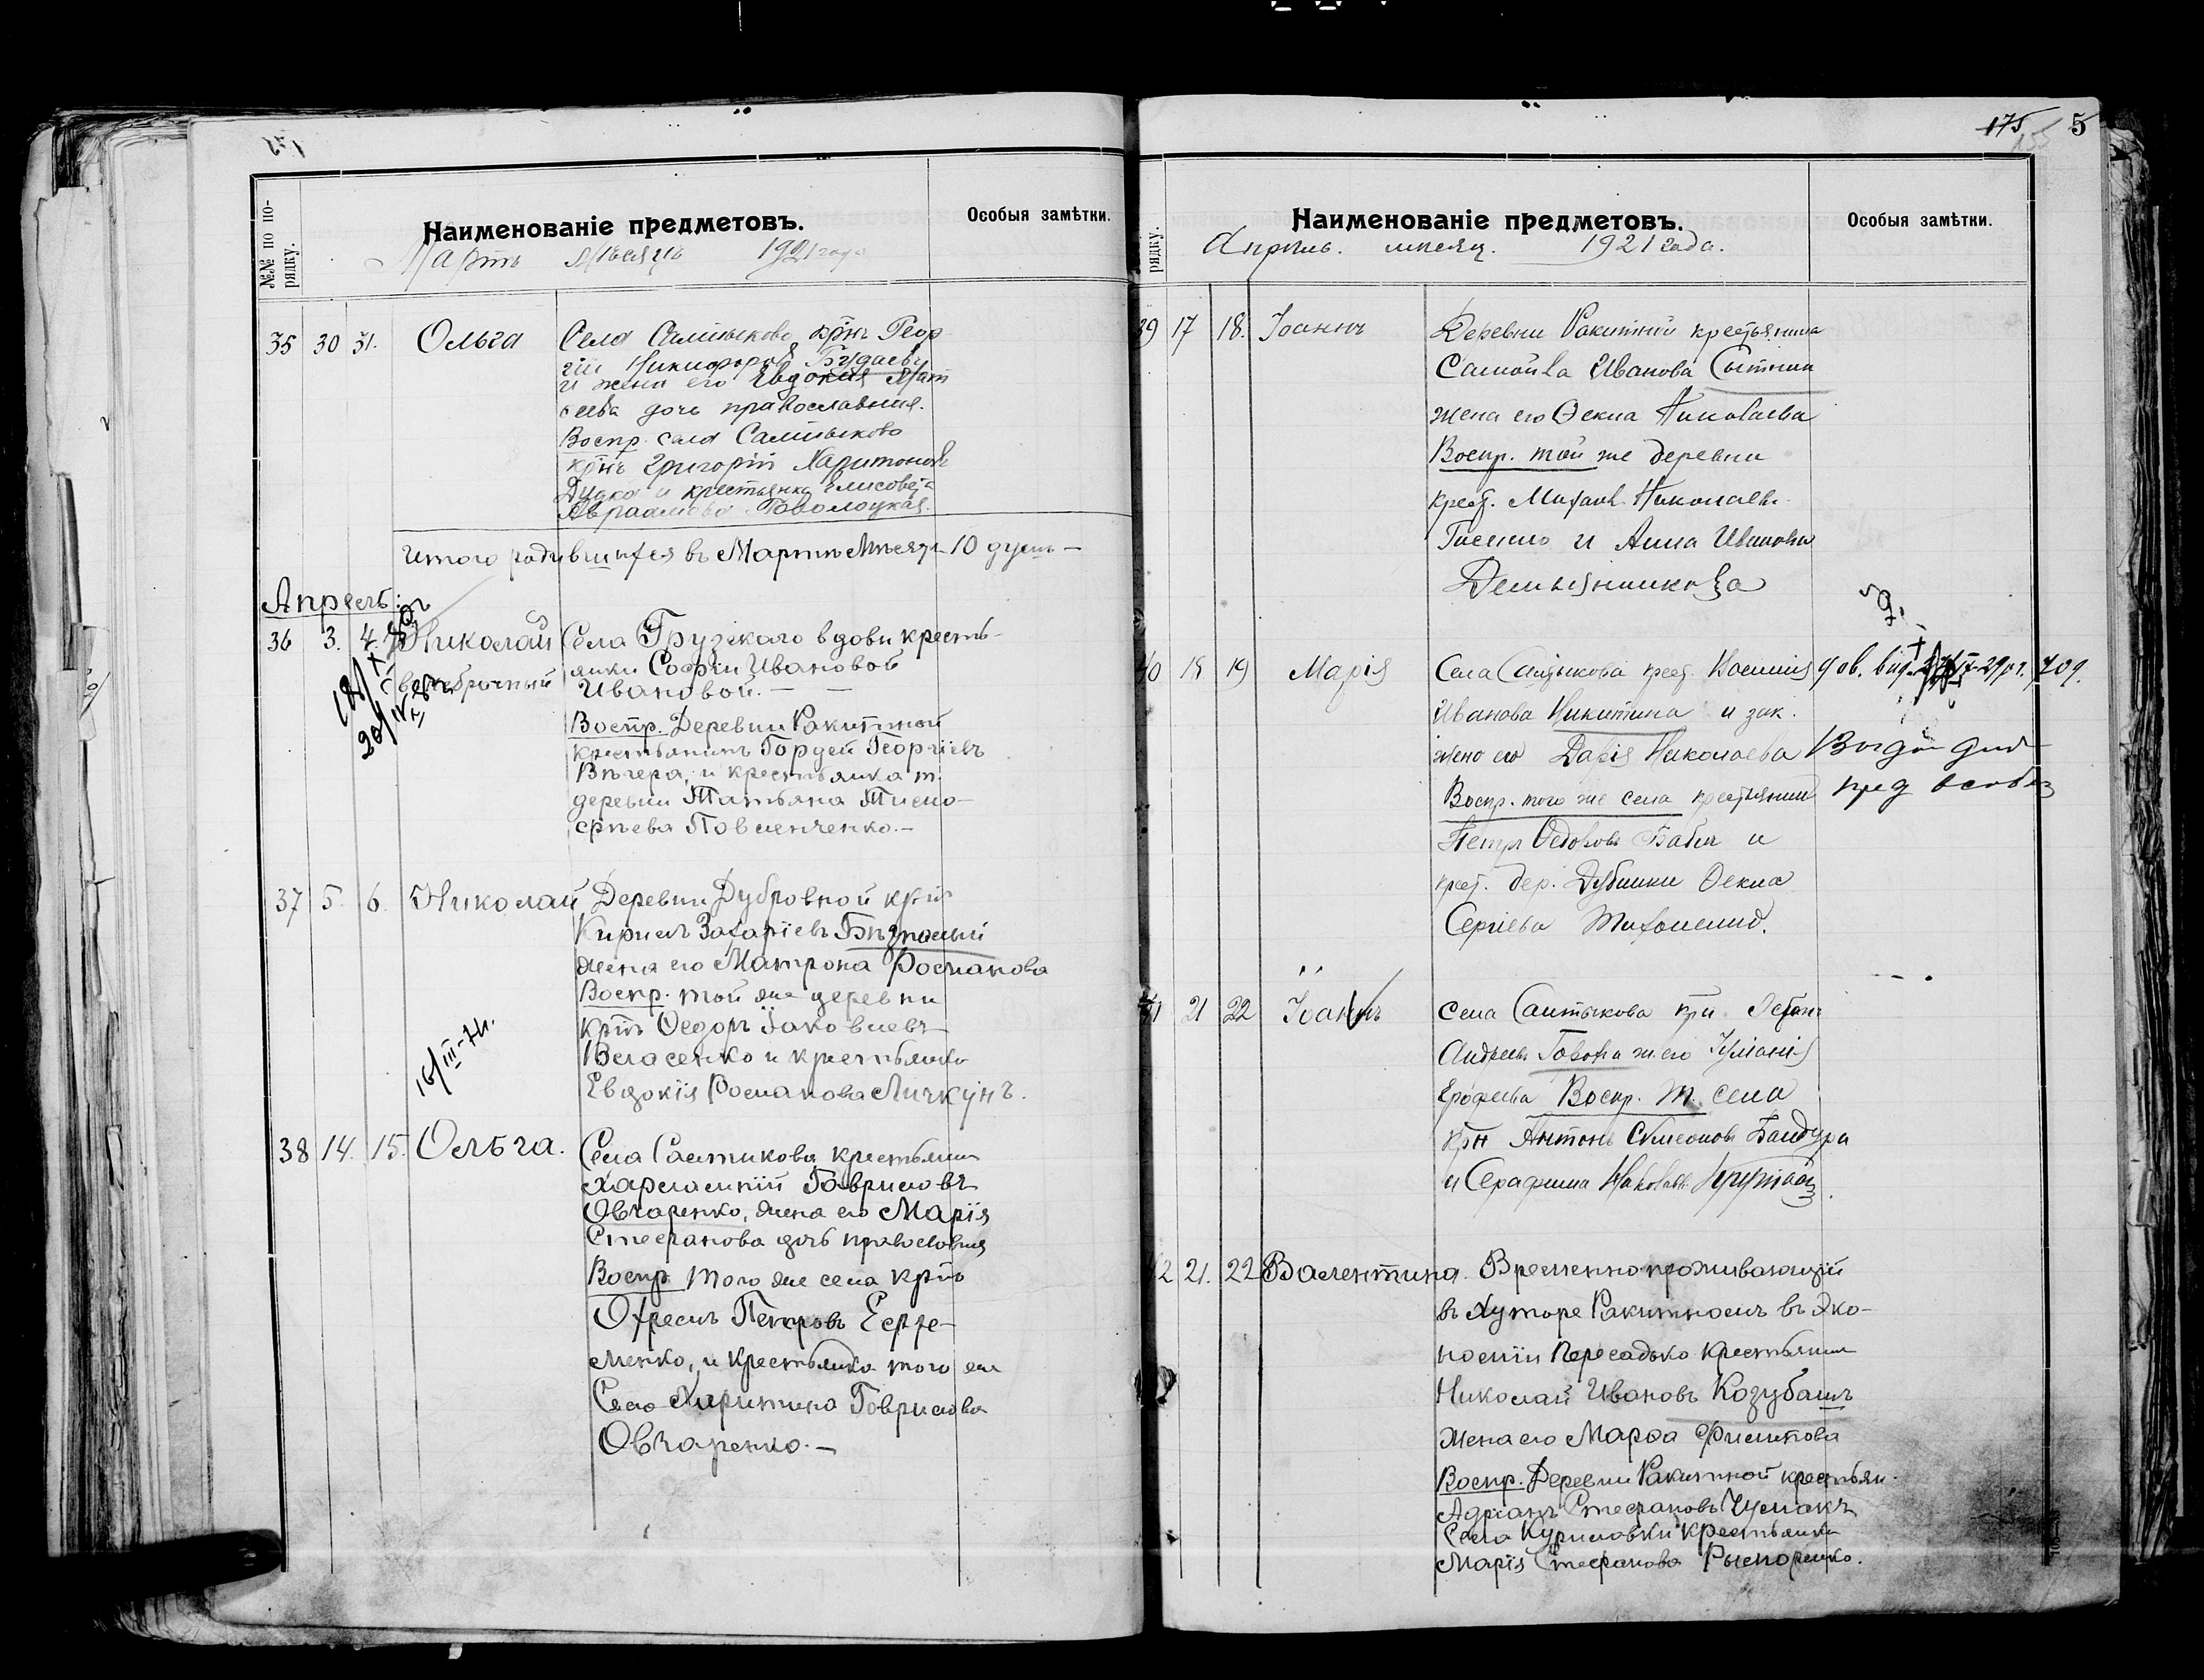 №№ по по-
рядку.
Наименованіе предметовъ.
Особыя замѣтки.
Мартъ мѣсяцъ 1921 года
35 30 31. Ольга
Села Салтыкова крнъ Геор-
гій Никифоровъ Будаевъ
и жена его Евдокія Мат
ѳеева дочь православныя.
Воспр. села Салтыково
крнъ Григорій Харитоновъ
и крестьянка Елисовета
Авраамова
Итого родившихся въ Мартѣ Мѣсяцѣ 10 душъ —
Апрель:
36 3. 4. Николай
внебрачный
Села Грузскаго вдовы кресть-
янки Софіи Ивановой
Ивановой. — —
Воспр. Деревни Ракитной
крестьянинъ Гордей Георгіевъ
Вѣчера, и крестьянка т.
деревни Татьяна
37 5. 6. Николай
Деревни Дубровной крнъ
Кирилъ Захаріевъ
жена его Матрона Романова
Воспр. той же деревни
крнъ Ѳедоръ Іаковлевъ
Власенко и крестьянка
Евдокія Романова Личкунъ.
16/III-74.
38 14. 15. Ольга.
Села Салтикова крестьянин
Харлампій Гавриловъ
Овчаренко, жена его Марія
Стефанова дочь православныя
Воспр того же села крнъ
Охремъ Петровъ Ефре-
менко, и крестьянка того же
Села Харитина Гаврилова
Овчаренко. —
175 5
рядку.
Наименованіе предметовъ.
Особыя замѣтки.
Апрѣль. мѣсяц. 1921 года.
39 17 18. Іоаннъ
Деревни Ракитной крестьянина
Самойла Иванова Сытника
жена его Ѳекла Николаева
Воспр. той же деревни
крест. Михаил Николаев.
и Анна Иванова
Демьянникова
40 18 19 Марія
Села Салтыкова крест.
Иванова Никитина и зак.
жена его Дарія Николаева
Воспр. того же села крестьянин
Петръ Ѳедоровъ Бабич и
крест. дер. Дубинки Ѳекла
Сергіева
41 21 22 Іоаннъ
Села Салтыкова крн.
Андреев Говоха ж. его Іуліанія
Ерофеева Воспр. т. села
крн Антонъ Симеонов Бандура
и Серафима
42 21. 22 Валентина.
Временнопроживающій
въ Хуторе Ракитномъ въ Эко-
номіи Пересадько крестьянин
Николай Ивановъ Козубашъ
жена его Марѳа Филипова
Воспр. Деревни Ракитной крестьян-
Адріанъ Стефановъ Чумакъ
Села Куриловки крестьянка
Марія Стефанова